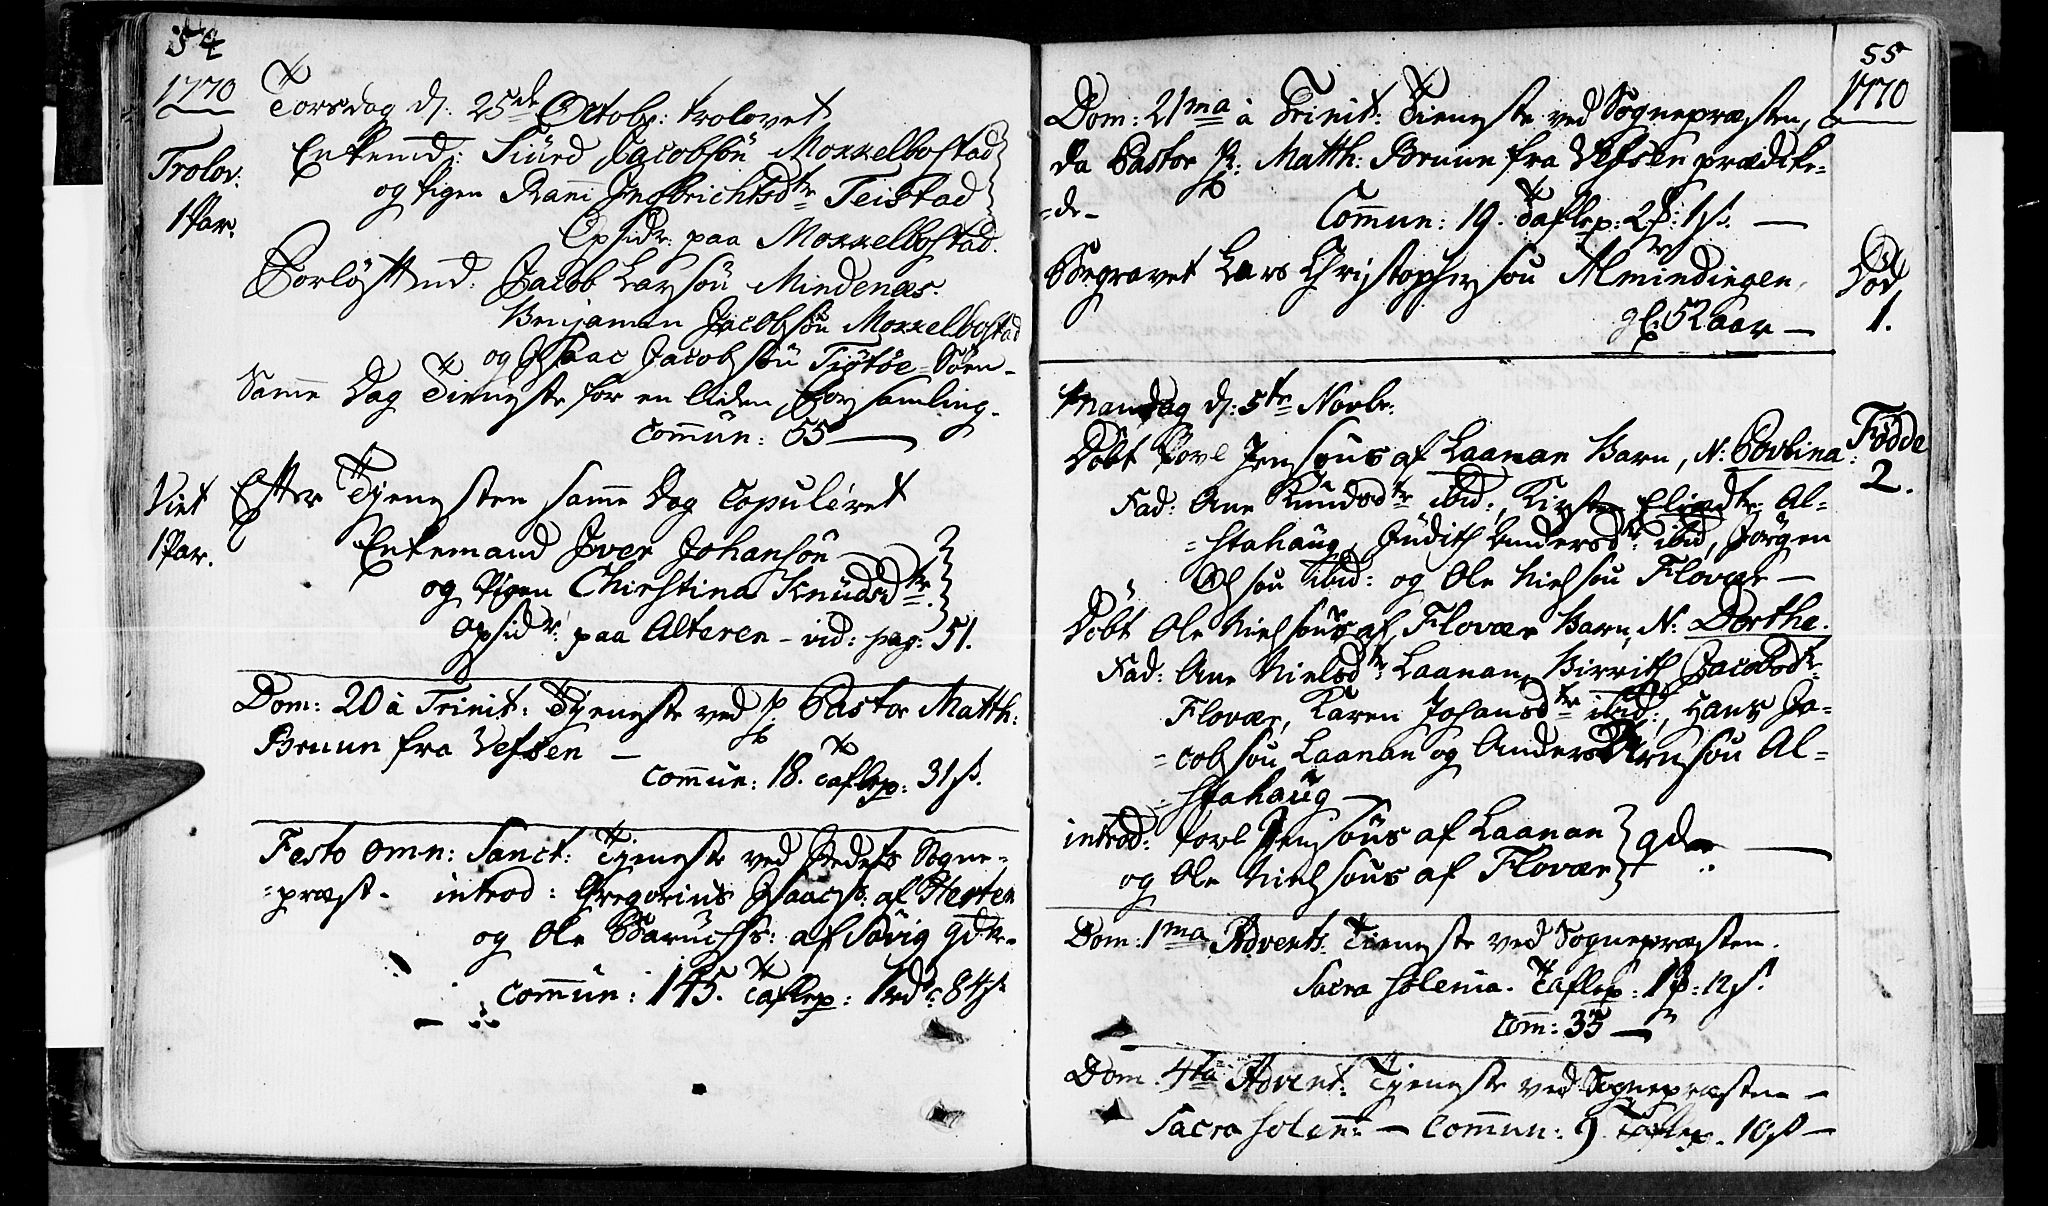 54
1770
Torsdag d: 25de Octobr: trolovet
Trolov.
1 Par.
Enkemd: Siurd Jacobsøn Moxxelbostad
og Pigen Ranni Ingbrichtsdtr Teistad
Opsidr: paa Moxxelbostad.
Forløftnd: Jacob Larsøn Mindenæs.
Benjamin Jacobsøn Moxxelbostad
og Isaac Jacobsøn Tiøtøe-Søen-
Samme Dag Tieneste for en liden forsamling.
Commun: 55 —
Viet
1 Par.
Efter Tjenesten samme Dag Copuleret
Enkemand Iver Johansøn
og Pigen Chirstina Knudsdtr.
Opsidr: paa Alteren - vid: pag: 51.
Dom: 20 à Trinit: Tjeneste ved Hr Pastor Matth:
Bruun fra Vefsen —
Commun: 18. Taflep: 31 s.
Festo omn: Sanct: Tjeneste ved Stedets Sogne-
-præst. introd: Gregorius Isaacs: af Hesten
og Ole Baruchs: af Søvig qdr.
Commun: 145. Taflep: 1 rdr: 84 s
55
1770
Dom: 21ma à Trinit: Tieneste ved Sognepræsten,
da Pastor Hr: Matth: Bruun fra Vefsen prædike-
-de -
Commun: 19. Taflep: 2 : 1 s. —
Død
1.
Begravet Lars Christophersøn Almindingen,
gl: 52 aar —
Mandag d: 5te Novbr:
Fødde
2.
Døbt Povl Jensøns af Laanan Barn, N: Povlina:
Fad: Ane Knudsdtr ibid:, Kirsten Eliædtr: Al-
-stahaug, Judith Andersdtr: ibid, Jørgen
Olsøn ibid: og Ole Nielsøn Flovær —
Døbt Ole Nielsøns af Flovær Barn, N: Dorthe.
Fad: Ane Nielsdtr: Laanan, Birrith Jacobsdtr
Flovær, Karen Johansdtr ibid:, Hans Ja-
-cobsøn Laanan og Anders Arnsøn Al-
-stahaug —
introd: Povl Jensøns af Laanan
og Ole Nielsøns af Flovær } qdr —
Dom: 1ma Advents: Tieneste ved Sognepræsten.
Sacra solenia. Taflep: 1 : 12 s.
Com: 35 —
Dom. 4ta Advent: Tjeneste ved Sognepræsten —
Sacra solen: — Commun: 9 Taflep. 10 s —